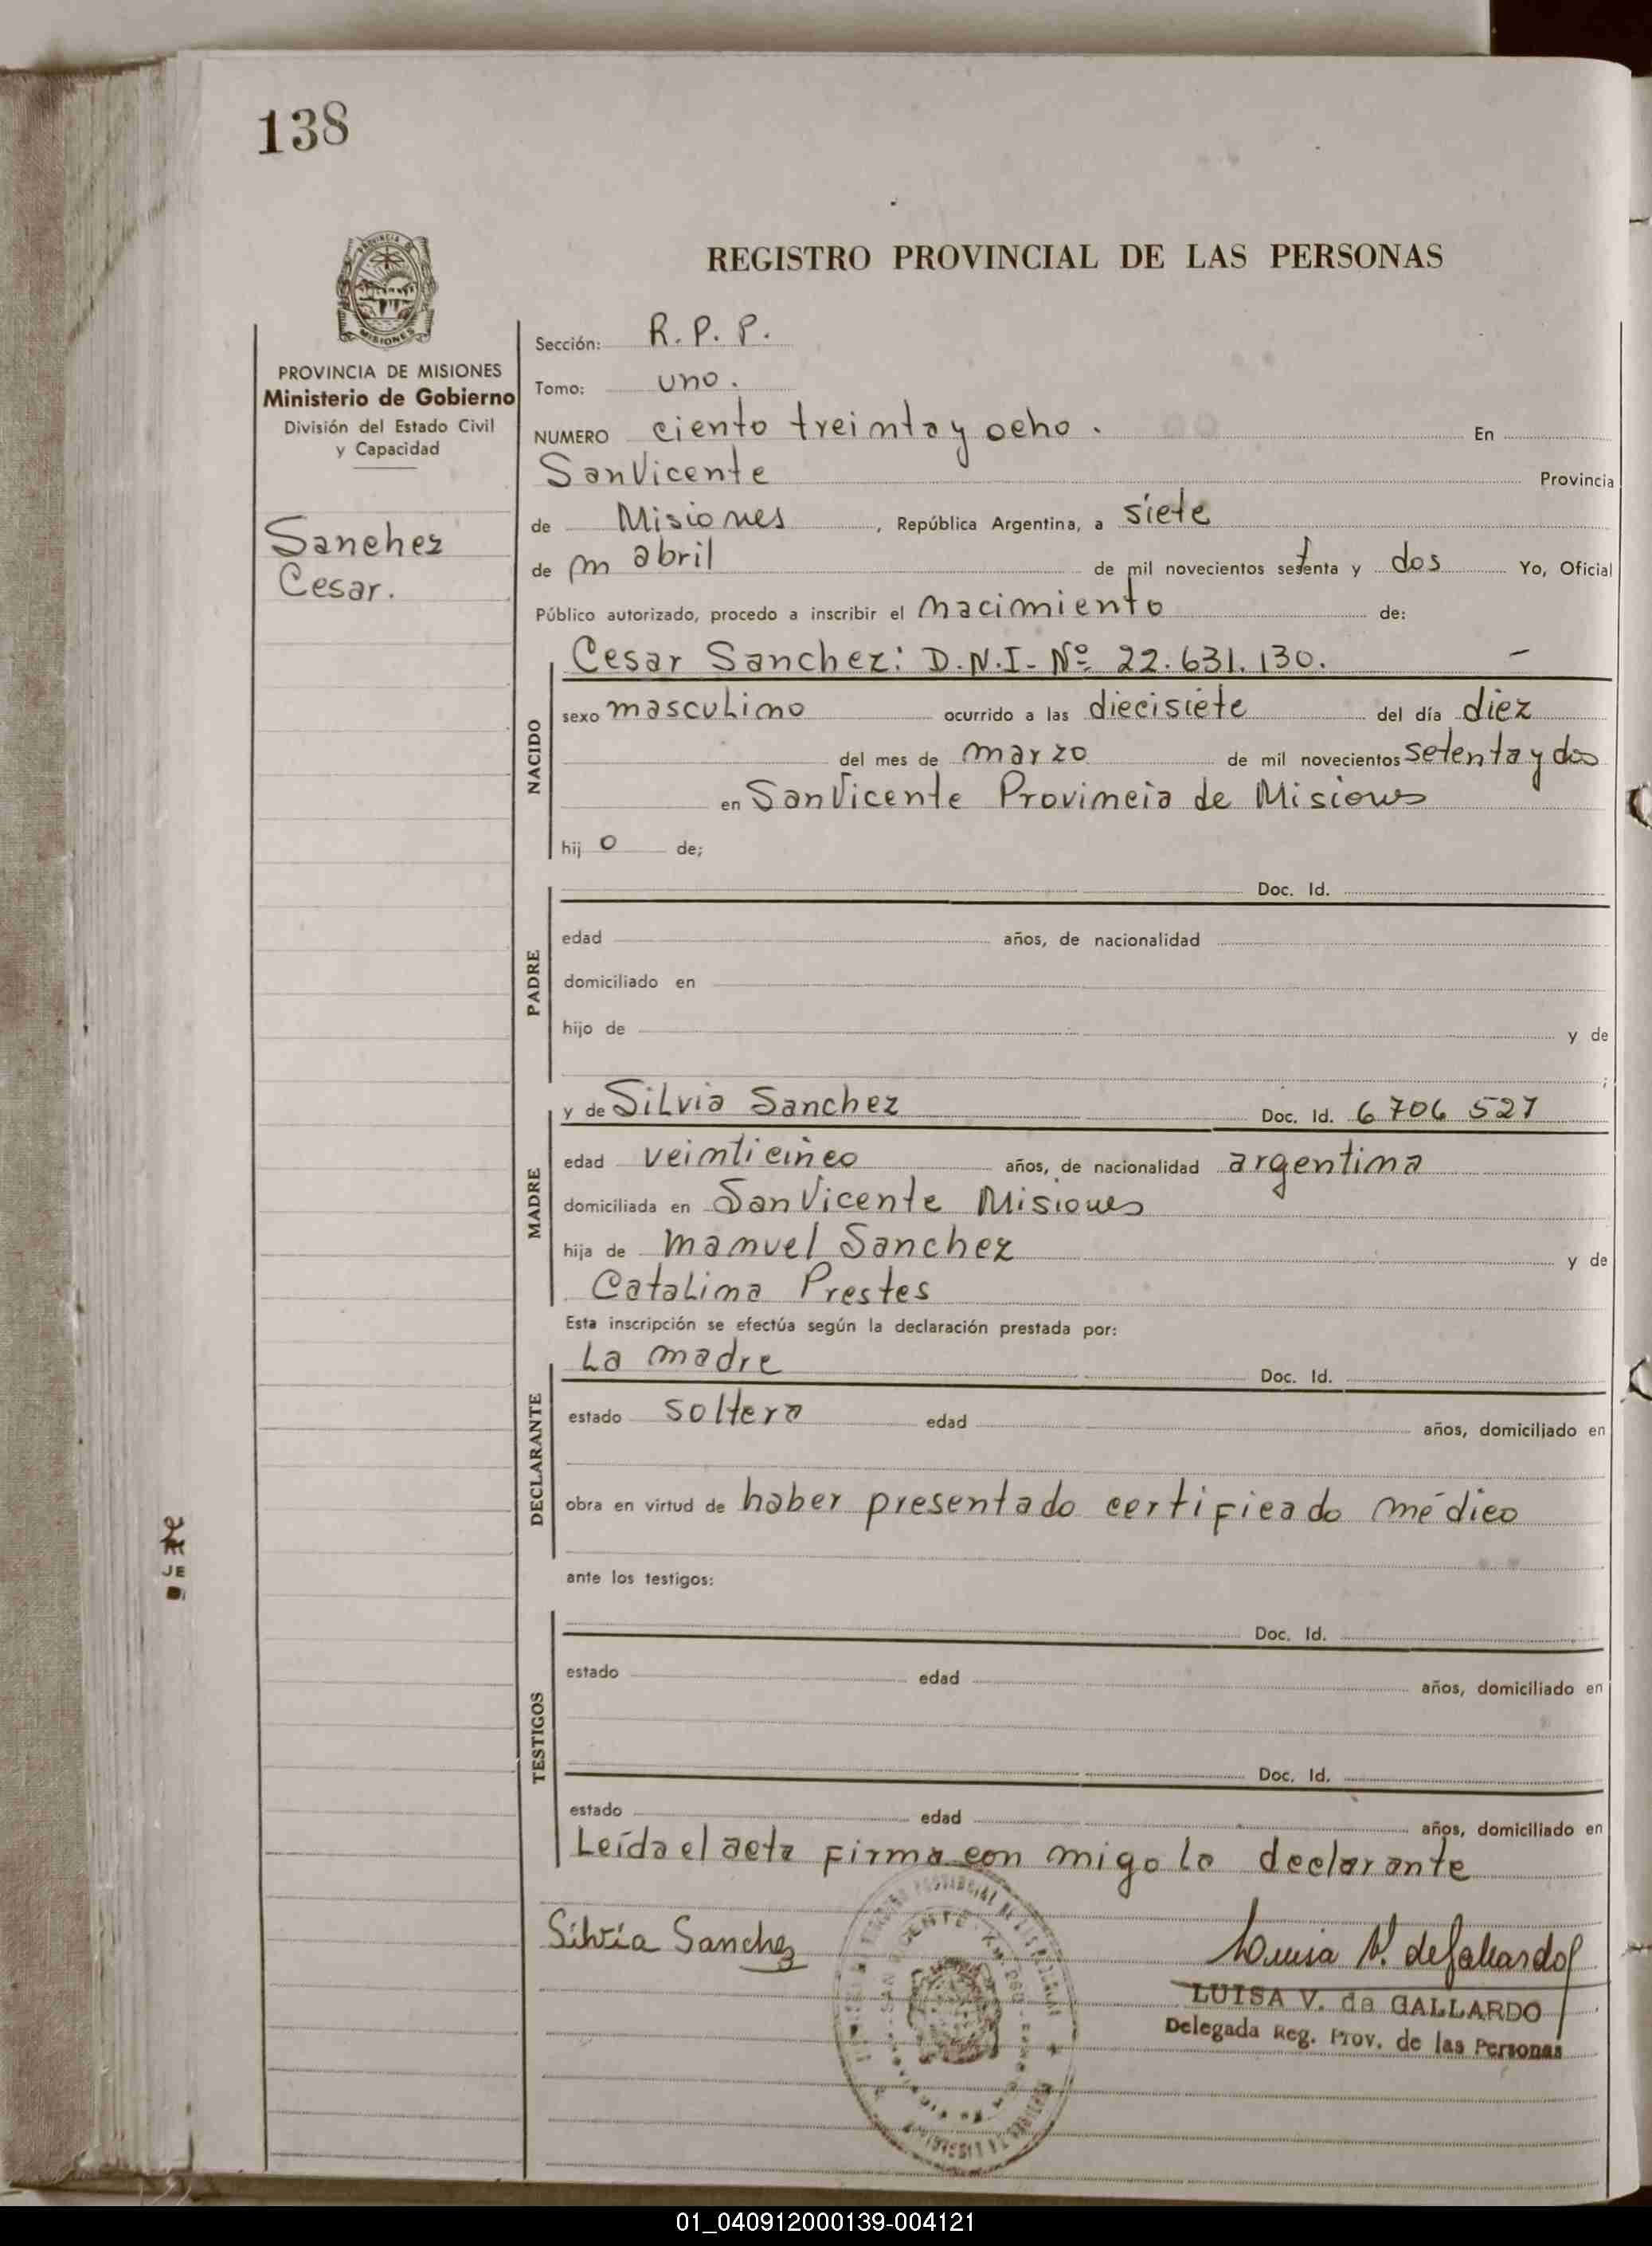 138
PROVINCIA DE MISIONES
Ministerio de Gobierno
División del Estado Civil
y Capacidad
Sanchez
Cesar.
REGISTRO PROVINCIAL DE LAS PERSONAS
Sección: R. P. P.
Tomo: uno.
NUMERO ciento treinta y ocho. En
San Vicente Provincia
de Misiones, República Argentina, a siete
de m abril de mil novecientos setenta y dos Yo, Oficial
Público autorizado, procedo a inscribir el nacimiento de:
NACIDO
Cesar Sanchez: D.N.I- Nº 22.631.130. -
sexo masculino ocurrido a las diecisiete del día diez
del mes de marzo de mil novecientos setenta y dos
en San Vicente Provincia de Misiones
hij o de;
PADRE
Doc. Id.
edad años, de nacionalidad
domiciliado en
hijo de y de
;
MADRE
y de Silvia Sanchez Doc. Id. 6 706 527
edad veinticinco años, de nacionalidad argentina
domiciliada en San Vicente Misiones
hija de Manuel Sanchez y de
Catalina Prestes
Esta inscripción se efectúa según la declaración prestada por:
DECLARANTE
La madre Doc. Id.
estado soltera edad años, domiciliado en
obra en virtud de haber presentado certificado médico
ante los testigos:
TESTIGOS
Doc. Id.
estado edad años, domiciliado en
Doc. Id.
estado edad años, domiciliado en
Leída el acta firma con migo la declarante
Silvia Sanchez
Luisa V. de Gallardo
LUISA V. de GALLARDO
Delegada Reg. Prov. de las Personas
01_040912000139-004121